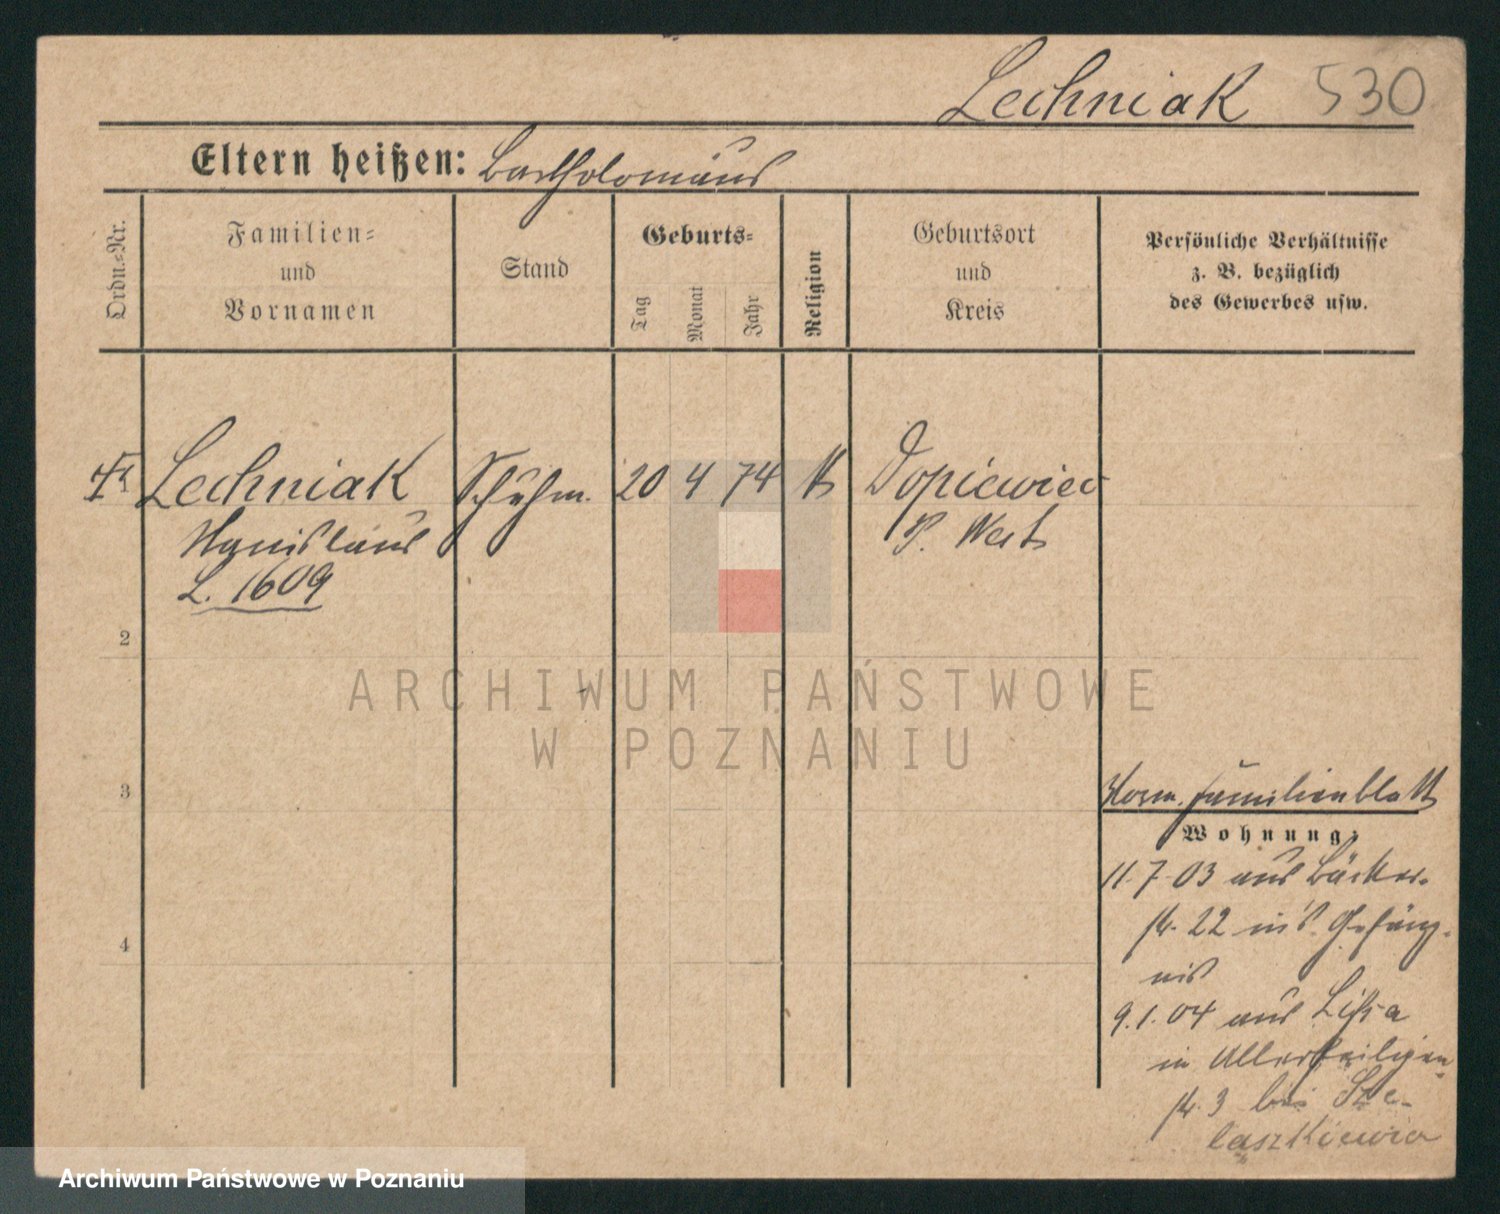 Lechniak 530
Eltern heißen: Bartholomäus
Ordn.-Nr.
Familien-
und
Vornamen
Stand
Geburts-
Tag
Monat
Jahr
Religion
Geburtsort
und
Kreis
Persönliche Verhältnisse
z. B. bezüglich
des Gewerbes usw.
Lechniak Schuhm. 20 4 74 k Dopiewiec
Stanislaus P. West
L. 1609
2
3
4
ARCHIWUM PAŃSTWOWE
W POZNANIU
Familienblatt
Wohnung:
11.7.03 aus Bäcker-
str. 22 in's Gefäng-
nis
9.1.04 aus Lissa
in Allerheiligen-
str. 3 bei Sze-
laszkiewicz
Archiwum Państwowe w Poznaniu